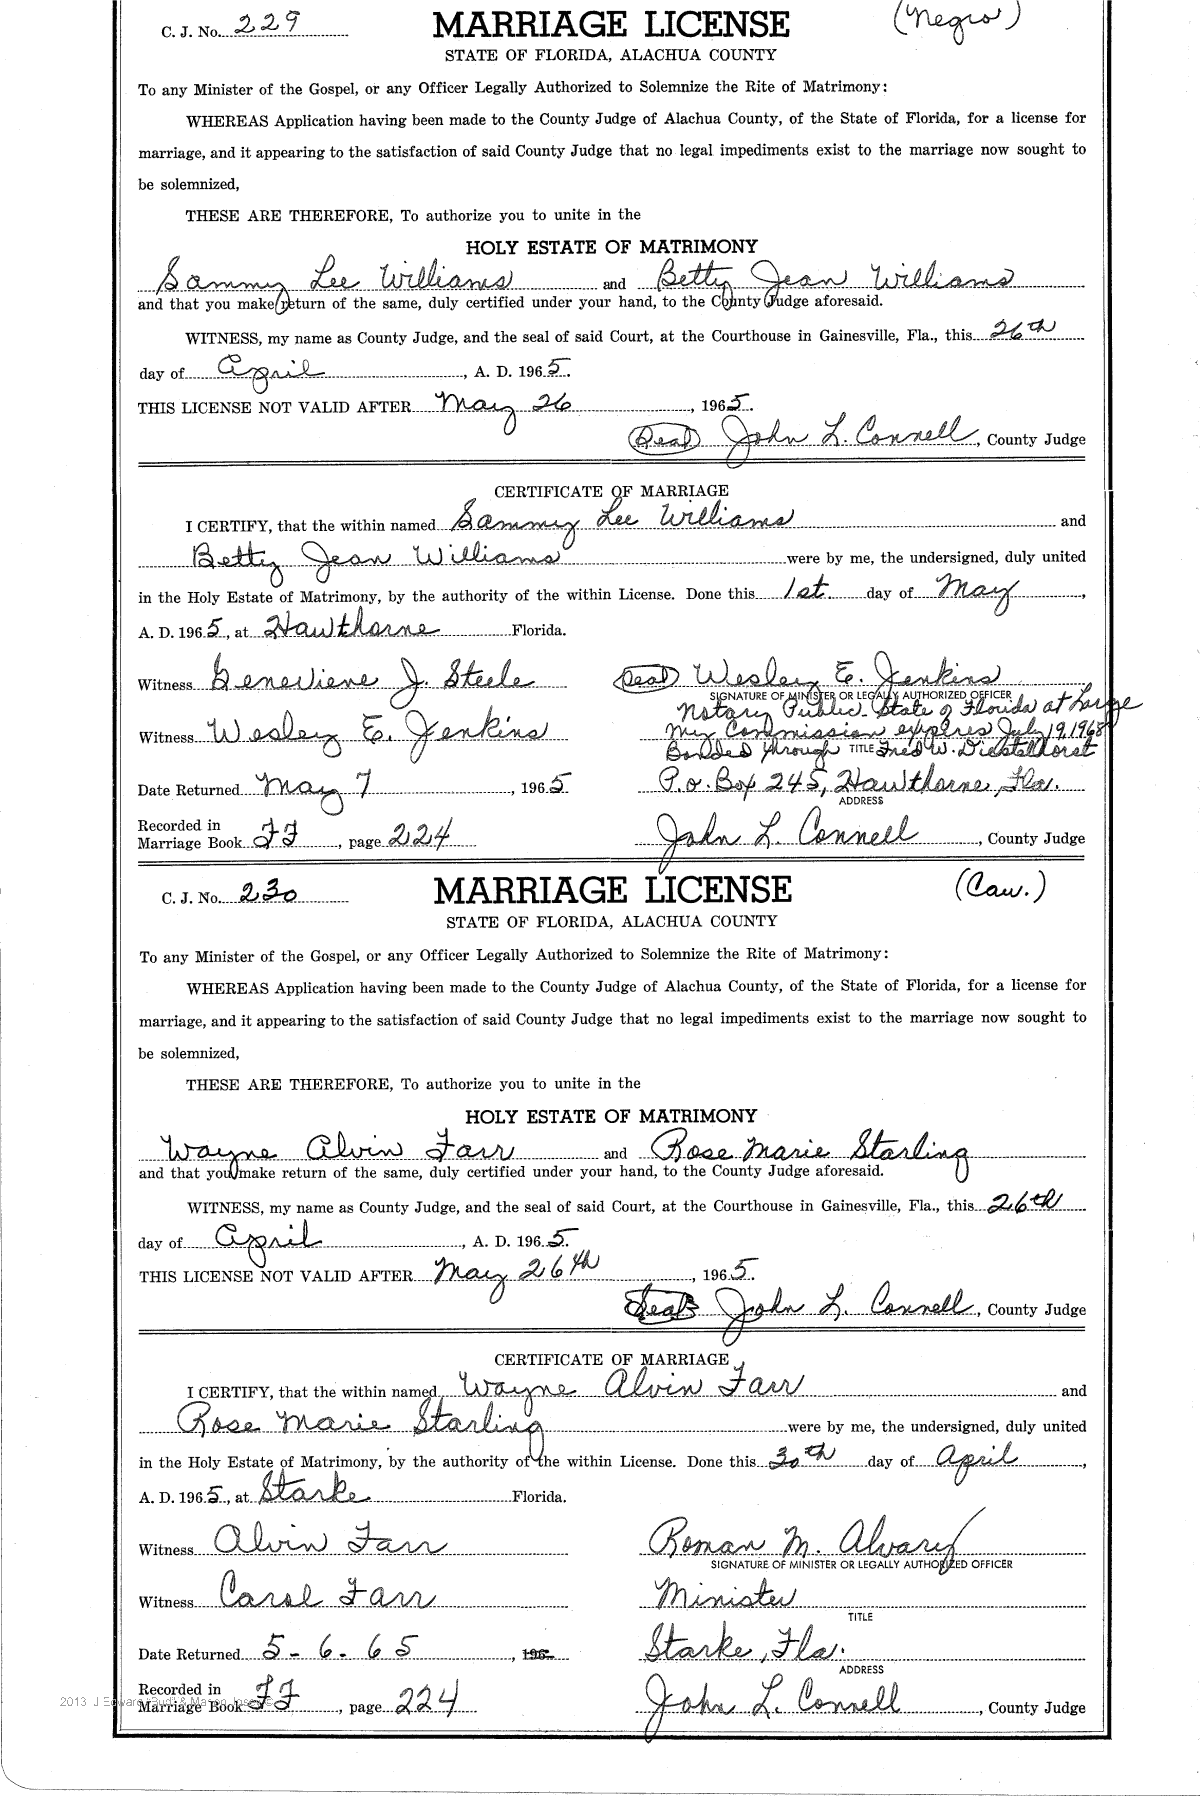 C. J. No. 229 MARRIAGE LICENSE (Negro)
STATE OF FLORIDA, ALACHUA COUNTY
To any Minister of the Gospel, or any Officer Legally Authorized to Solemnize the Rite of Matrimony:
WHEREAS Application having been made to the County Judge of Alachua County, of the State of Florida, for a license for
marriage, and it appearing to the satisfaction of said County Judge that no legal impediments exist to the marriage now sought to
be solemnized,
THESE ARE THEREFORE, To authorize you to unite in the
HOLY ESTATE OF MATRIMONY
Sammy Lee Williams and Betty Jean Williams
and that you make return of the same, duly certified under your hand, to the County Judge aforesaid.
WITNESS, my name as County Judge, and the seal of said Court, at the Courthouse in Gainesville, Fla., this 26th
day of April, A. D. 1965.
THIS LICENSE NOT VALID AFTER May 26, 1965.
(Seal) John L. Connell, County Judge
CERTIFICATE OF MARRIAGE
I CERTIFY, that the within named Sammy Lee Williams and
Betty Jean Williams were by me, the undersigned, duly united
in the Holy Estate of Matrimony, by the authority of the within License. Done this 1st day of May,
A. D. 1965, at Hawthorne Florida.
Witness Genevieve J. Steele (Seal) Wesley E. Jenkins
SIGNATURE OF MINISTER OR LEGALLY AUTHORIZED OFFICER
Notary Public - State of Florida at Large
Witness Wesley E. Jenkins My Commission expires July 19, 1968
Bonded through TITLE Fred W. Diestelhorst
Date Returned May 7, 1965 P.O. Box 245, Hawthorne, Fla.
ADDRESS
Recorded in
Marriage Book FF, page 224 John L. Connell, County Judge
C. J. No. 230 MARRIAGE LICENSE (Cau.)
STATE OF FLORIDA, ALACHUA COUNTY
To any Minister of the Gospel, or any Officer Legally Authorized to Solemnize the Rite of Matrimony:
WHEREAS Application having been made to the County Judge of Alachua County, of the State of Florida, for a license for
marriage, and it appearing to the satisfaction of said County Judge that no legal impediments exist to the marriage now sought to
be solemnized,
THESE ARE THEREFORE, To authorize you to unite in the
HOLY ESTATE OF MATRIMONY
Wayne Alvin Farr and Rose Marie Starling
and that you make return of the same, duly certified under your hand, to the County Judge aforesaid.
WITNESS, my name as County Judge, and the seal of said Court, at the Courthouse in Gainesville, Fla., this 26th
day of April, A. D. 1965.
THIS LICENSE NOT VALID AFTER May 26th, 1965.
(Seal) John L. Connell, County Judge
CERTIFICATE OF MARRIAGE
I CERTIFY, that the within named Wayne Alvin Farr and
Rose Marie Starling were by me, the undersigned, duly united
in the Holy Estate of Matrimony, by the authority of the within License. Done this 30th day of April,
A. D. 1965, at Starke Florida.
Witness Alvin Farr Roman M. Alvary
SIGNATURE OF MINISTER OR LEGALLY AUTHORIZED OFFICER
Witness Carol Farr Minister
TITLE
Date Returned 5-6-65, 196 Starke, Fla.
ADDRESS
Recorded in
2013 J Edward "Bud" &
Marriage Book FF, page 224 John L. Connell, County Judge